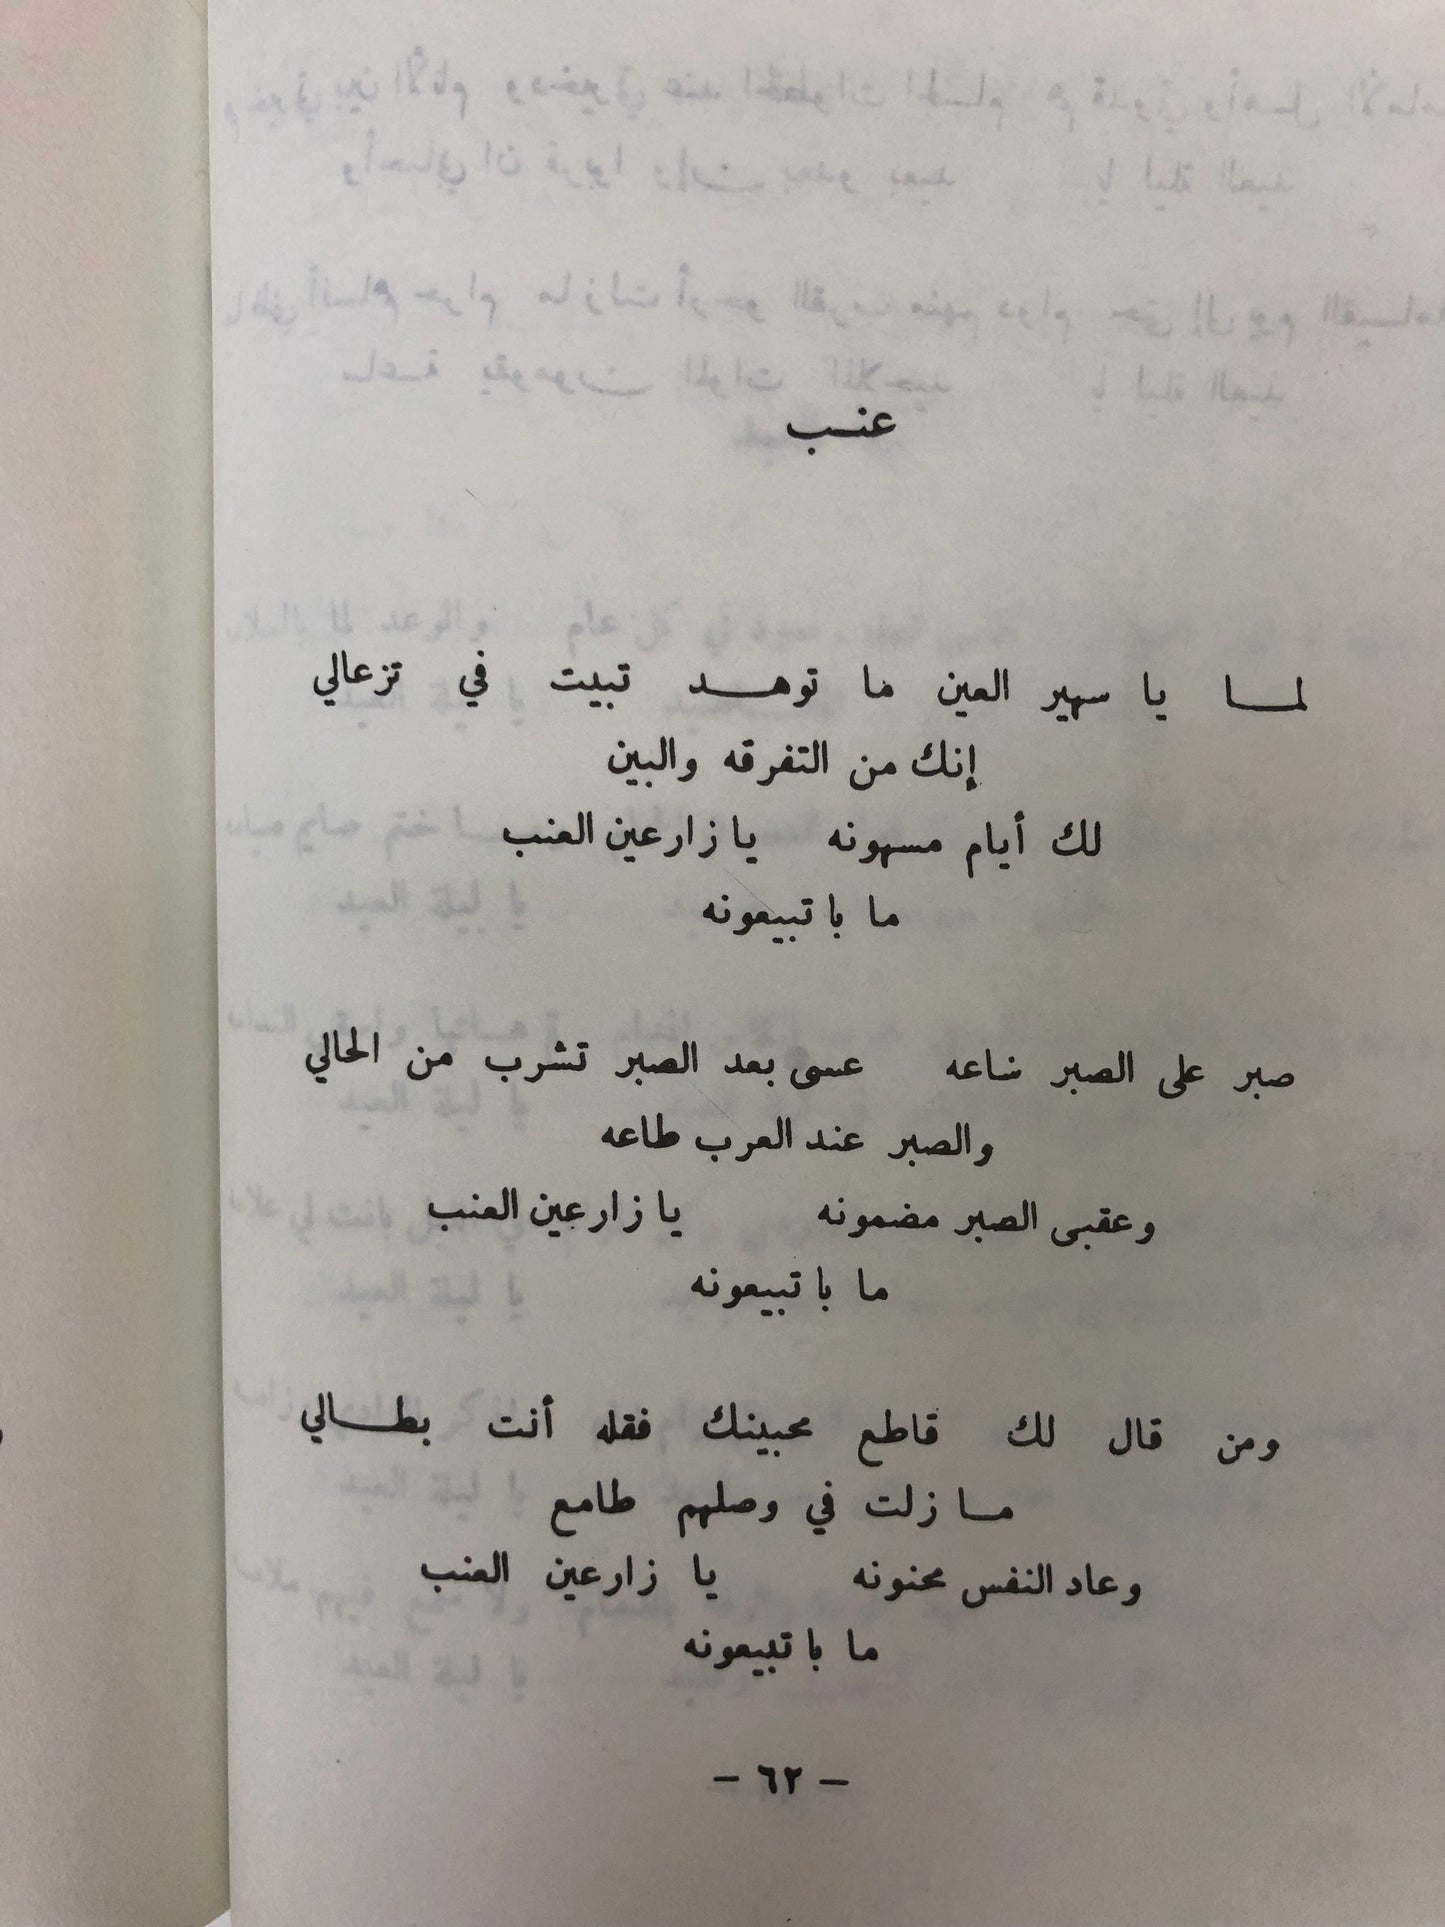 عنـــب
لمـــا يا سهير العين ما توهـــد تبيت في تزعالي
إنك من التفرقه والبين
لك أيام مسهونه يا زارعين العنب
ما با تبيعونه
صبر على الصبر ساعه عسى بعد الصبر تشرب من الحالي
والصبر عند العرب طاعه
وعقبى الصبر مضمونه يا زارعين العنب
ما با تبيعونه
ومن قال لك قاطع محبينك فقله أنت بطـــالي
مـــا زلت في وصلهم طامع
وعاد النفس محنونه يا زارعين العنب
ما با تبيعونه
– ٦٢ –